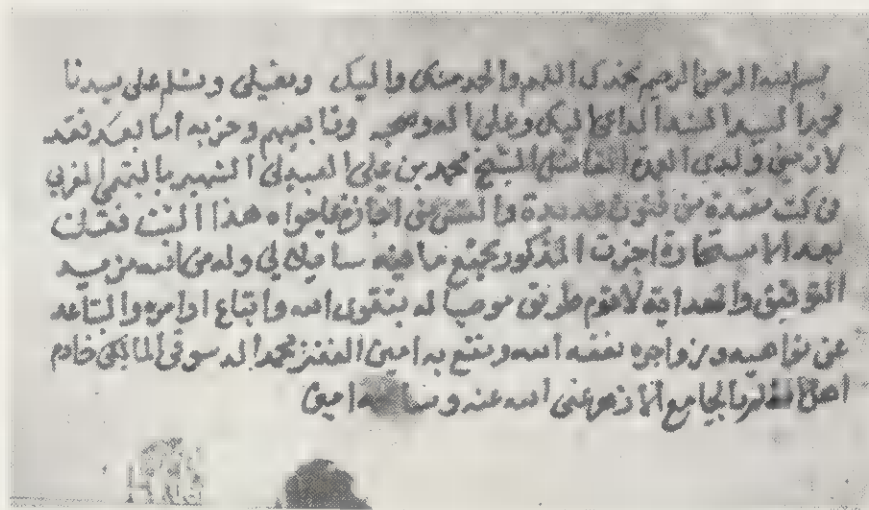 بسم الله الرحمن الرحيم نحمدك اللهم والحمد منك واليك ونصلي ونسلم على سيدنا
محمد السيد السند الداعي اليك وعلى اله وصحبه وتابعيهم وحزبه اما بعد فقد
لازمني ولدي الفاضل الشيخ محمد بن علي الشهير بالتميمي المغربي
في كتب عديدة من فنون عديدة والتمس مني اجازة بما حواه هذا الثبت فقلت
بعد الاستخارة اجزت المذكور بجميع ما فيه سائلا لي وله من الله مزيد
التوفيق والهداية لاقوم طريق موصيا له بتقوى الله واتباع اوامره والتباعد
عن نواهيه وزواجره نفعه الله ونفع به امين الفقير محمد الدسوقي المالكي خادم
اهل بالجامع الازهر عفى الله عنه امين